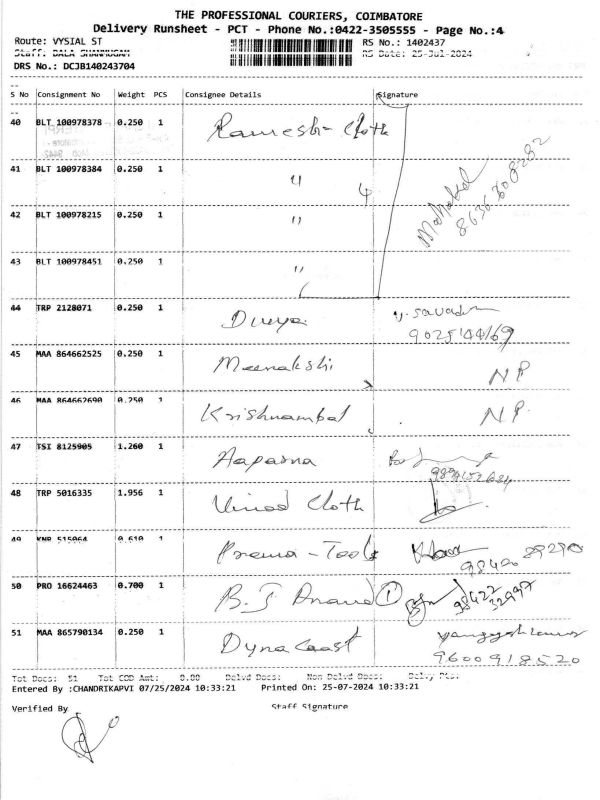 THE PROFESSIONAL COURIERS, COIMBATORE
Delivery Runsheet - PCT - Phone No.:0422-3505555 - Page No.:4
Route: VYSIAL ST RS No.: 1402437
Staff: BALA SHANMUGAM RS Date: 25-Jul-2024
DRS No.: DCJB140243704
S No Consignment No Weight PCS Consignee Details Signature
40 BLT 100978378 0.250 1 Ramesh- Cloth
41 BLT 100978384 0.250 1 " 4
42 BLT 100978215 0.250 1 "
43 BLT 100978451 0.250 1 "
44 TRP 2128071 0.250 1 Durga
9025144169
45 MAA 864662525 0.250 1 Meenakshi NP
46 MAA 864662690 0.250 1 Krishnambal NP
47 TSI 8125905 1.260 1 Aaparna
48 TRP 5016335 1.956 1 Vinod Cloth
49 KNR 515064 0.610 1 Prema - Tools
98400 89290
50 PRO 16624463 0.700 1 B.J Anand 1
98422 32997
51 MAA 865790134 0.250 1 Dyna Coast
9600918520
Tot Docs: 51 Tot COD Amt: 0.00 Delvd Docs: Non Delvd Docs: Delvy Pts:
Entered By :CHANDRIKAPVI 07/25/2024 10:33:21 Printed On: 25-07-2024 10:33:21
Verified By Staff Signature